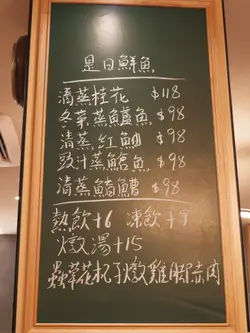 是日鮮魚
清蒸桂花 $118
冬菜蒸鱸魚 $98
清蒸紅鮋 $98
豉汁蒸鱠魚 $98
清蒸鯖鱭 $98
熱飲+6 凍飲+9
燉湯+15
蟲草花杞子燉雞腳赤肉